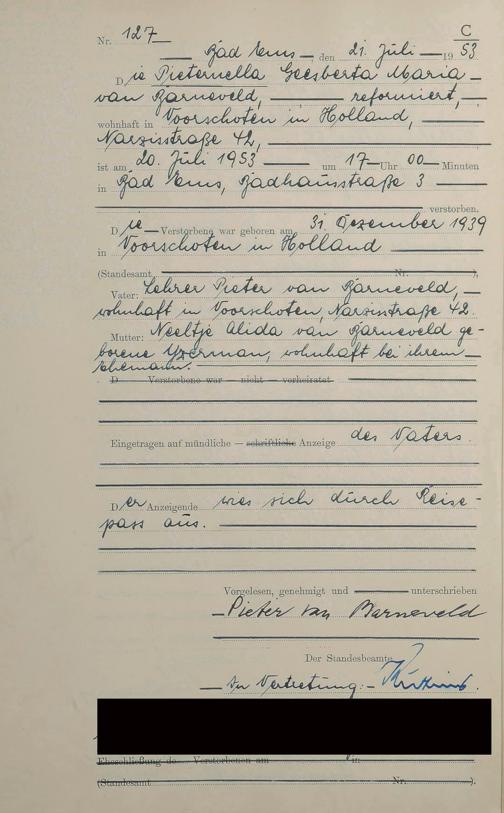 C
Nr. 127
Bad Ems, den 21. Juli 19 53
Die Pieternella Geesberta Maria
van Barneveld, reformiert,
wohnhaft in Voorschoten in Holland,
Narzisstraße 42,
ist am 20. Juli 1953 um 17 Uhr 00 Minuten
in Bad Ems, Badhausstraße 3
verstorben.
Die Verstorbene war geboren am 31. Dezember 1939
in Voorschoten in Holland
(Standesamt Nr. ),
Vater: Lehrer Pieter van Barneveld,
wohnhaft in Voorschoten, Narzisstraße 42.
Mutter: Neeltje Alida van Barneveld ge-
borene Yzerman, wohnhaft bei ihrem
Ehemann.
D Verstorbene war — nicht — verheiratet
Eingetragen auf mündliche — schriftliche Anzeige des Vaters.
Der Anzeigende wies sich durch Reise-
pass aus.
Vorgelesen, genehmigt und unterschrieben
Pieter van Barneveld
Der Standesbeamte
In Vertretung:
Eheschließung de Verstorbenen am in
(Standesamt Nr. ).